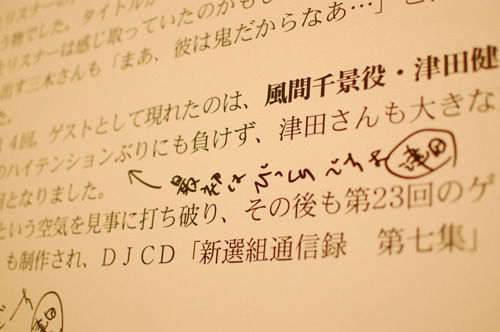 リスナーの
う物でした。タイトルか
リスナーは感じ取っていたのかも
出す三木さんも「まあ、彼は鬼だからなあ…」と、
た。
14回。ゲストとして現れたのは、風間千景役・津田健
のハイテンションぶりにも負けず、津田さんも大きな
となりました。
最初はぶっちゃ 津田
という空気を見事に打ち破り、その後も第23回のゲ
も制作され、DJCD「新選組通信録 第七集」
津田